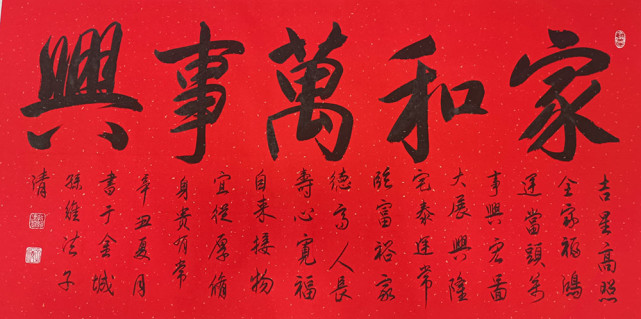 家和萬事興
吉星高照
全家福鴻
運當頭萬
事興宏圖
大展興隆
宅泰運常
臨富裕家
德高人長
壽心寬福
自來接物
宜從厚脩
身貴有常
辛丑夏月
書于金城
孫維子
清